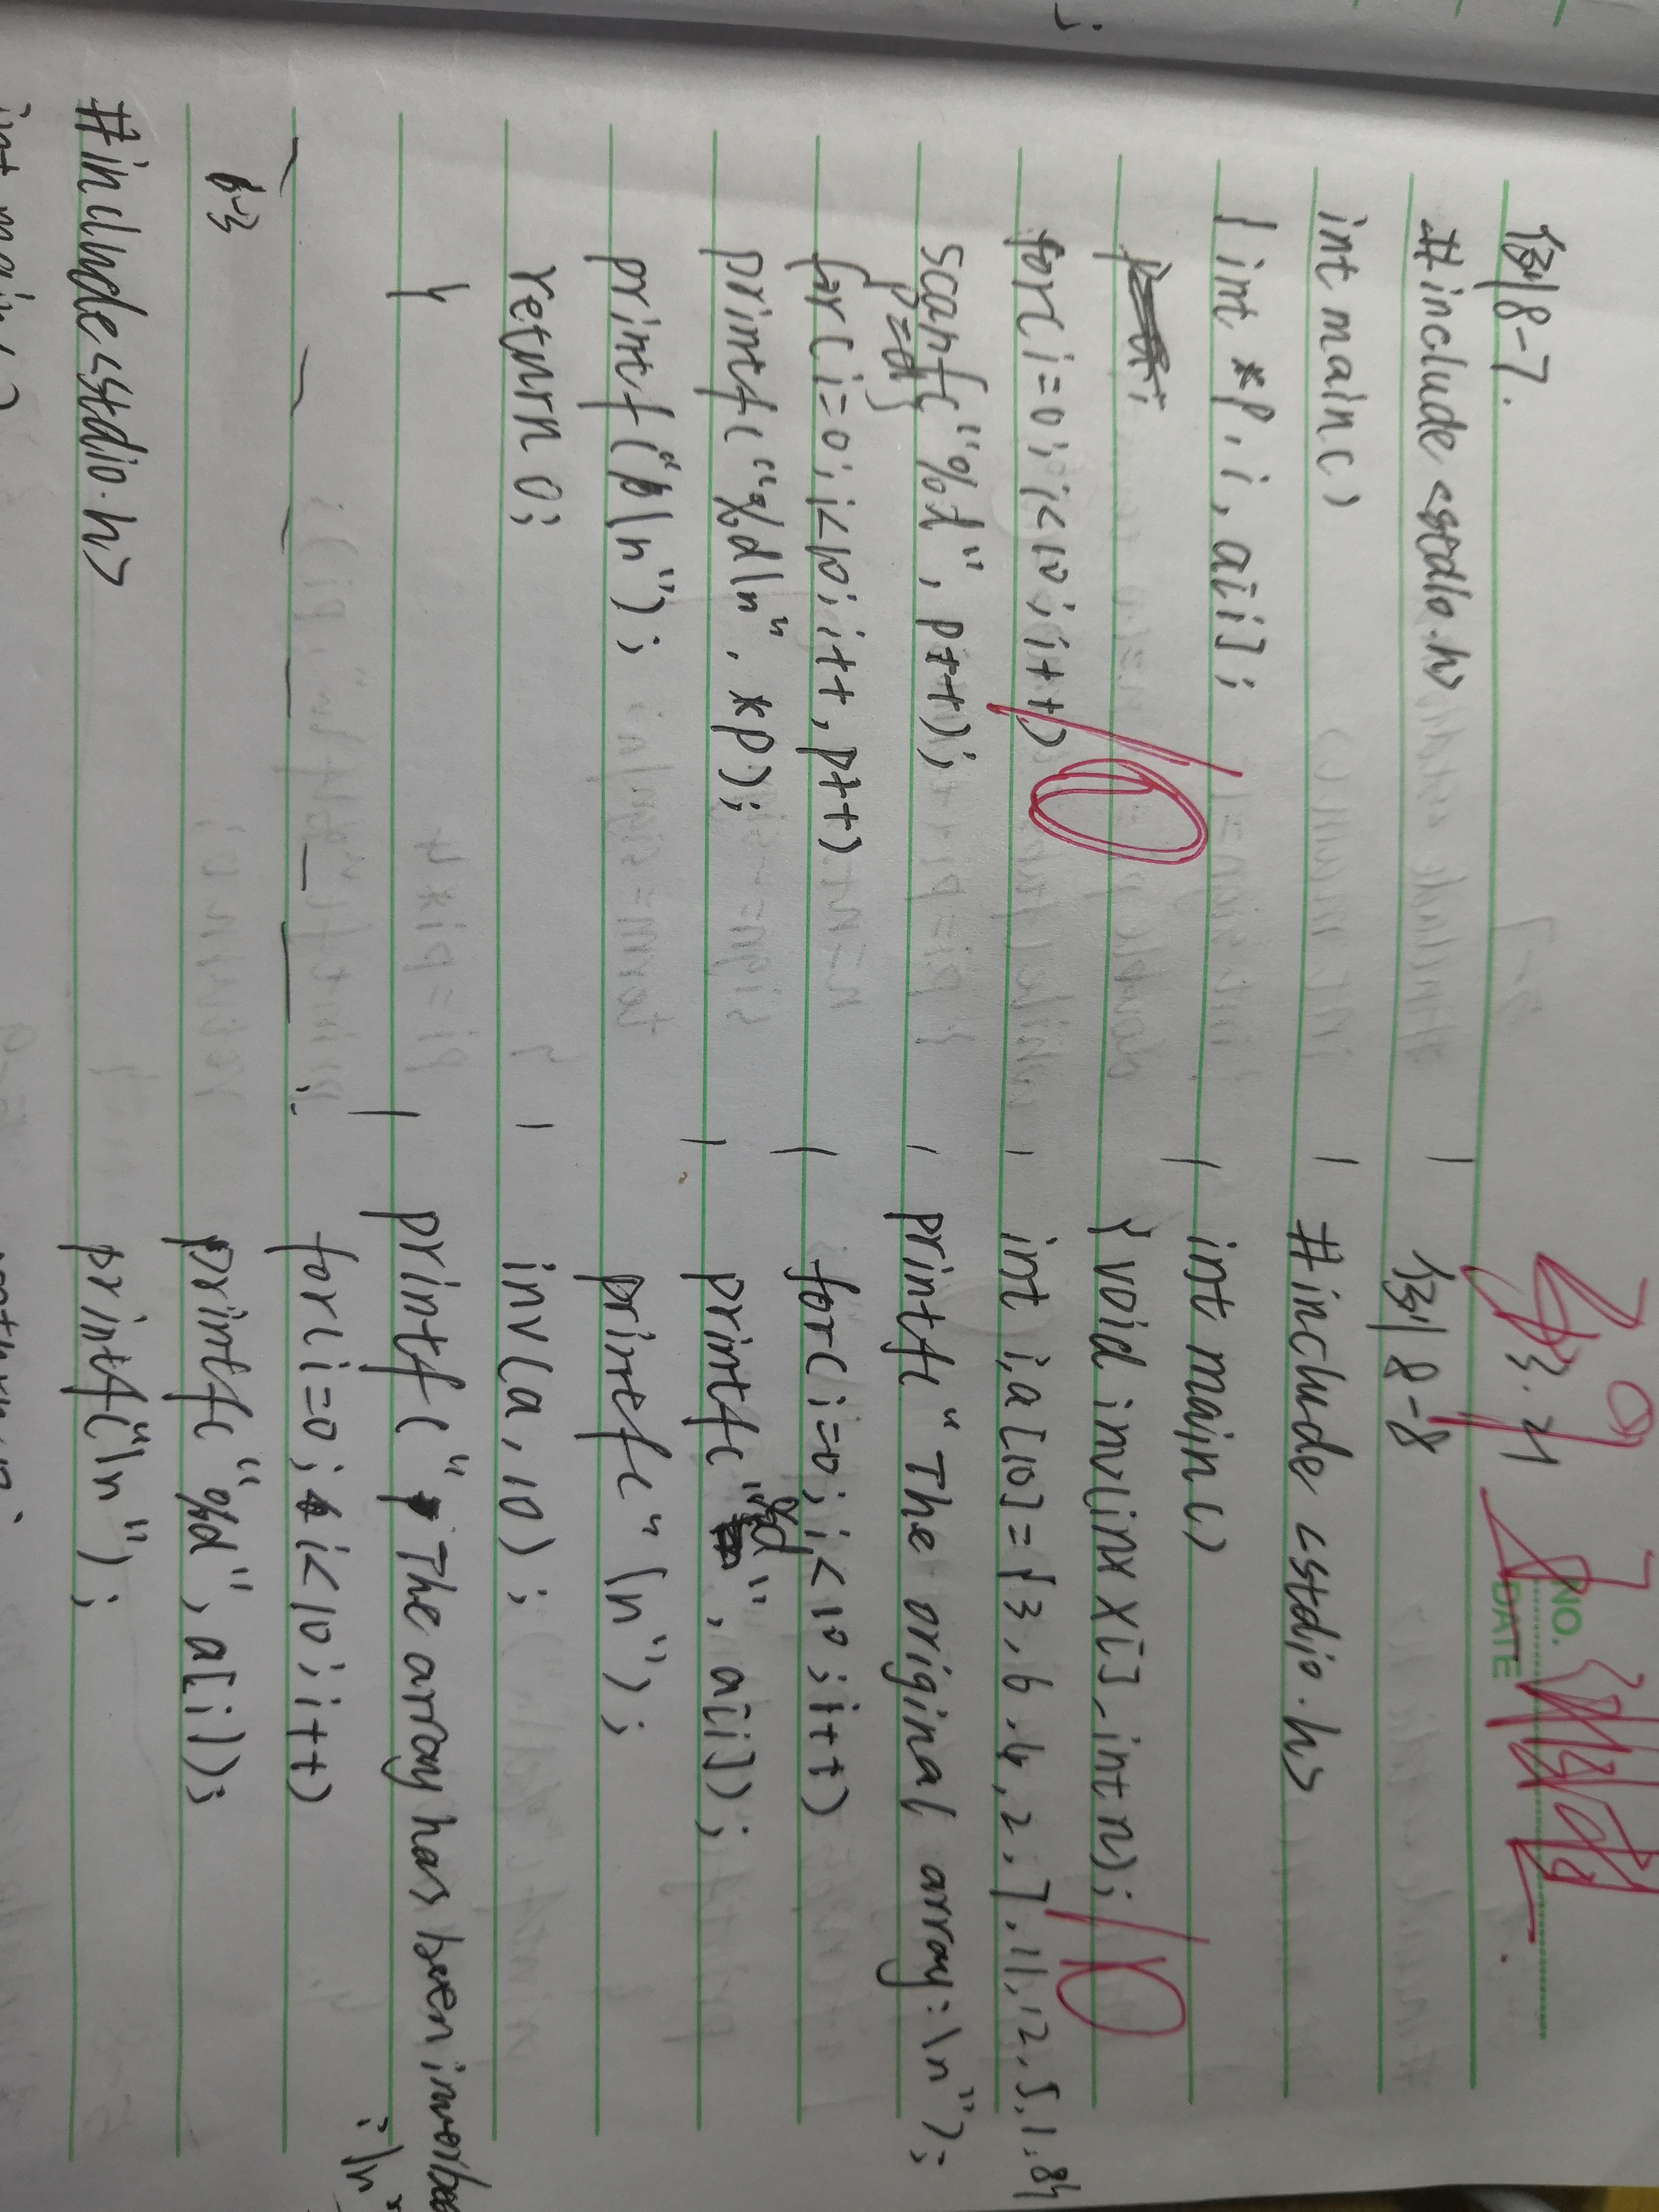 NO.
DATE
3.21
例8-7.
#include <stdio.h>
int main()
{int *p,i,a[i];
for(i=0;i<10;i++)
scanf("%d",p++);
p=a;
for(i=0;i<10;i++,p++)
printf("%d\n",*p);
printf("\n");
return 0;
}
10
6-3
#include<stdio.h>
例8-8
#include <stdio.h>
int main()
{void inv(int x[],int n);
int i,a[10]={3,6,4,2,7,11,12,5,1,8}
printf("The original array:\n");
for(i=0;i<10;i++)
printf("%d",a[i]);
printf("\n");
inv(a,10);
printf("The array has been
:\n"
for(i=0;i<10;i++)
printf("%d",a[i]);
printf("\n");
10